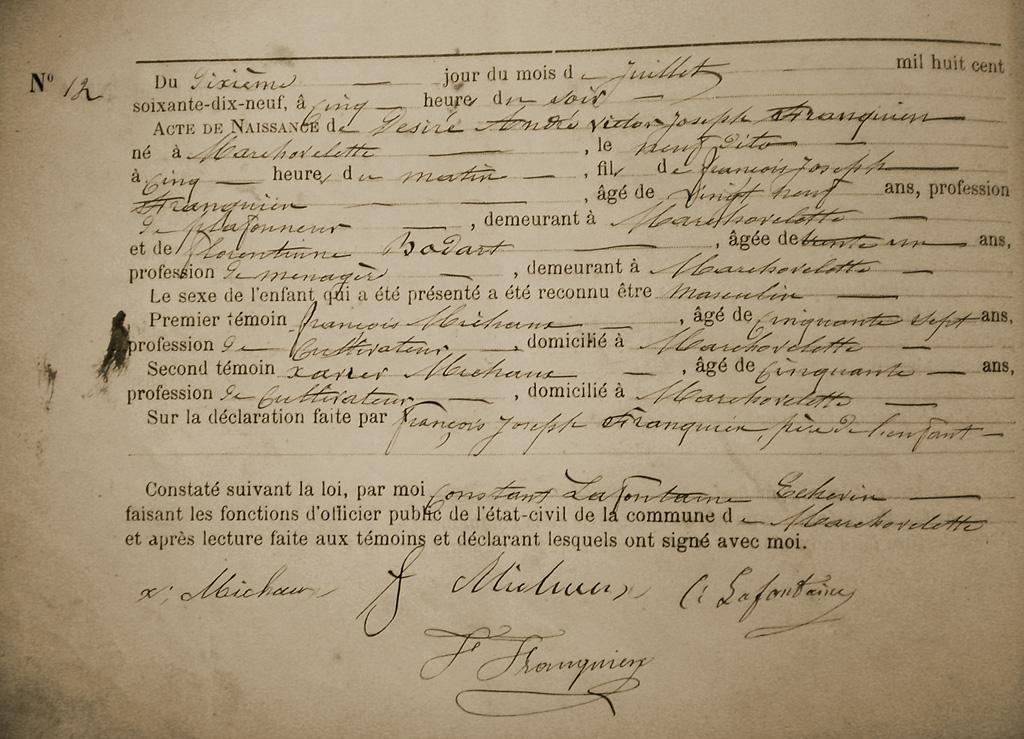 N° 12 Du Dixième jour du mois de Juillet mil huit cent
soixante-dix-neuf, à cinq heures du soir
ACTE DE NAISSANCE de Desiré André Victor Joseph Franquien
né à Marchovelette, le neuf dito
à cinq heures du matin, fils de françois Joseph
Franquien, âgé de vingt neuf ans, profession
de plafonneur, demeurant à Marchovelette
et de florentinne Bodart, âgée de trente un ans,
profession de menagèr, demeurant à Marchovelette
Le sexe de l'enfant qui a été présenté a été reconnu être masculin
Premier témoin françois Michaux, âgé de cinquante sept ans,
profession de Cultivateur, domicilié à Marchovelette
Second témoin xavier Michaux, âgé de cinquante ans,
profession de Cultivateur, domicilié à Marchovelette
Sur la déclaration faite par françois Joseph Franquien, père de l'enfant
Constaté suivant la loi, par moi Constant Lafontaine Echevin
faisant les fonctions d'officier public de l'état-civil de la commune de Marchovelette
et après lecture faite aux témoins et déclarant lesquels ont signé avec moi.
x. Michaux f Michaux C. Lafontaine
F Franquien